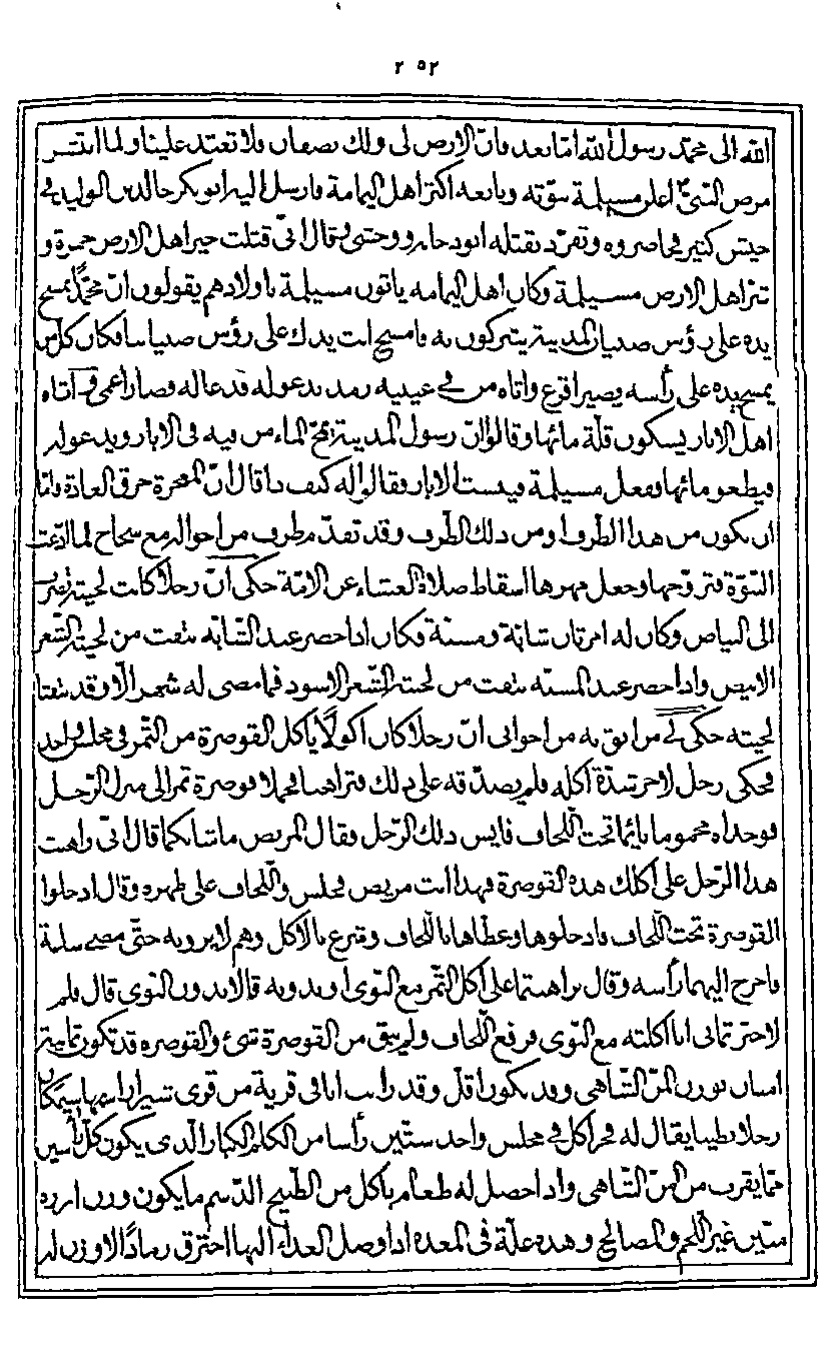 ٢٥٢
الله الى محمّد رسول الله امّا بعد فانّ الارض لى ولك نصفان فلا تعتد علينا ولما انتشر
مرض النبيّ اعلن مسيلمة نبوّته وبايعه اكثر اهل اليمامة فارسل اليه ابو بكر خالد بن الوليد في
جيش كثير فحاصروه وتفرّد بقتله ابو دجانه ووحشى وقال انّى قتلت خير اهل الارض حمزة و
شرّ اهل الارض مسيلمة وكان اهل اليمامه ياتون مسيلمة باولادهم يقولون انّ محمّدًا يمسح
يده على رؤس صبيان المدينة يتبركون به فامسح انت يدك على رؤس صبياننا فكان كلّ من
يمسح يده على رأسه يصير اقرع واتاه من في عينيه رمد يدعو له فدعا له فصار اعمى واتاه
اهل الابار يشكون قلّة مائها وقالوا انّ رسول المدينة يمجّ الماء من فيه فى الابار ويدعو لها
فيطعو مائها ففعل مسيلمة فيبست الابار فقالوا له كيف ذا قال انّ المعجزة خرق العادة وامّا
ان يكون من هذا الطرف او من ذلك الطّرف وقد تقدّم طرف من احواله مع سجاح لما ادّعت
النبوّة فتزوّجها وجعل مهرها اسقاط صلاة العشاء عن الامّة حكى انّ رجلا كانت لحيته تضرب
الى البياض وكان له امرتان شابّة ومسنّة فكان اذا حضر عند الشّابّه نتفت من لحيته الشّعر
الابيض واذا حضر عند المسنّه نتفت من لحيته الشّعر الاسود فما مضى له شهر الّا وقد نتفتا
لحيته حكى لي من اثق به من اخوانى انّ رجلا كان اكولًا ياكل القوصرة من التّمر فى مجلس واحد
فحكى رجل لاخر شدّة اكله فلم يصدّقه على ذلك فتراهنا فحملا قوصرة تمر الى منزل الرّجل
فوجداه محموما نايما تحت اللّحاف فايس ذلك الرّجل وقال المريض ما شانكما قال انّى راهنت
هذا الرّجل على اكلك هذه القوصرة فهذا انت مريض فجلس واللّحاف على ظهره وقال ادخلوا
القوصرة تحت اللّحاف فادخلوها وغطاها باللّحاف وشرع بالاكل وهم لا يرونه حتّى مضى ساعة
فاخرج اليهما رأسه وقال تراهنتما على اكل التّمر مع النّوى او بدونه قالا بدون النّوى قال فلم
لا خبرتمانى انا اكلته مع النّوى فرفع اللّحاف ولم يبق من القوصرة شئ والقوصره قد تكون ثمانية
امنان بوزن المنّ الشّاهى وقد يكون اقلّ وقد رايت انا فى قرية من قرى شيراز اسمها سيمكان
رجلا بطينا يقال له فخر اكل في مجلس واحد ستّين رأسا من الكلم الكبار الّذى يكون كلّ رأسين
ممّا يقرب من المنّ الشّاهى واذا حصل له طعام ياكل من الطّبيخ الدّسم ما يكون وزن ارزه
منّين غير اللّحم والمصالح وهذه علّة فى المعده اذا وصل الغذاء اليها احترق رمادًا لا وزن له